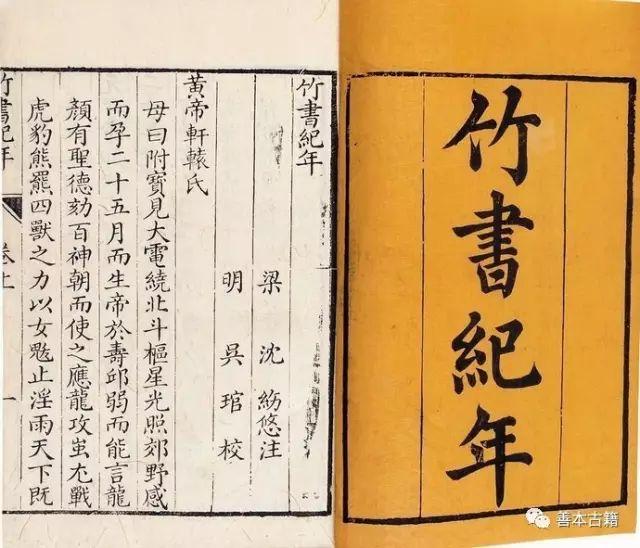 竹書紀年
竹書紀年
梁 沈 注
明 吳 琯 校
黃帝軒轅氏
母曰附寶見大電繞北斗樞星光照郊野感
而孕二十五月而生帝於壽邱弱而能言龍
顏有聖德劾百神朝而使之應龍攻蚩尤戰
虎豹熊羆四獸之力以女魃止淫雨天下既
竹書紀年 卷上 一
善本古籍